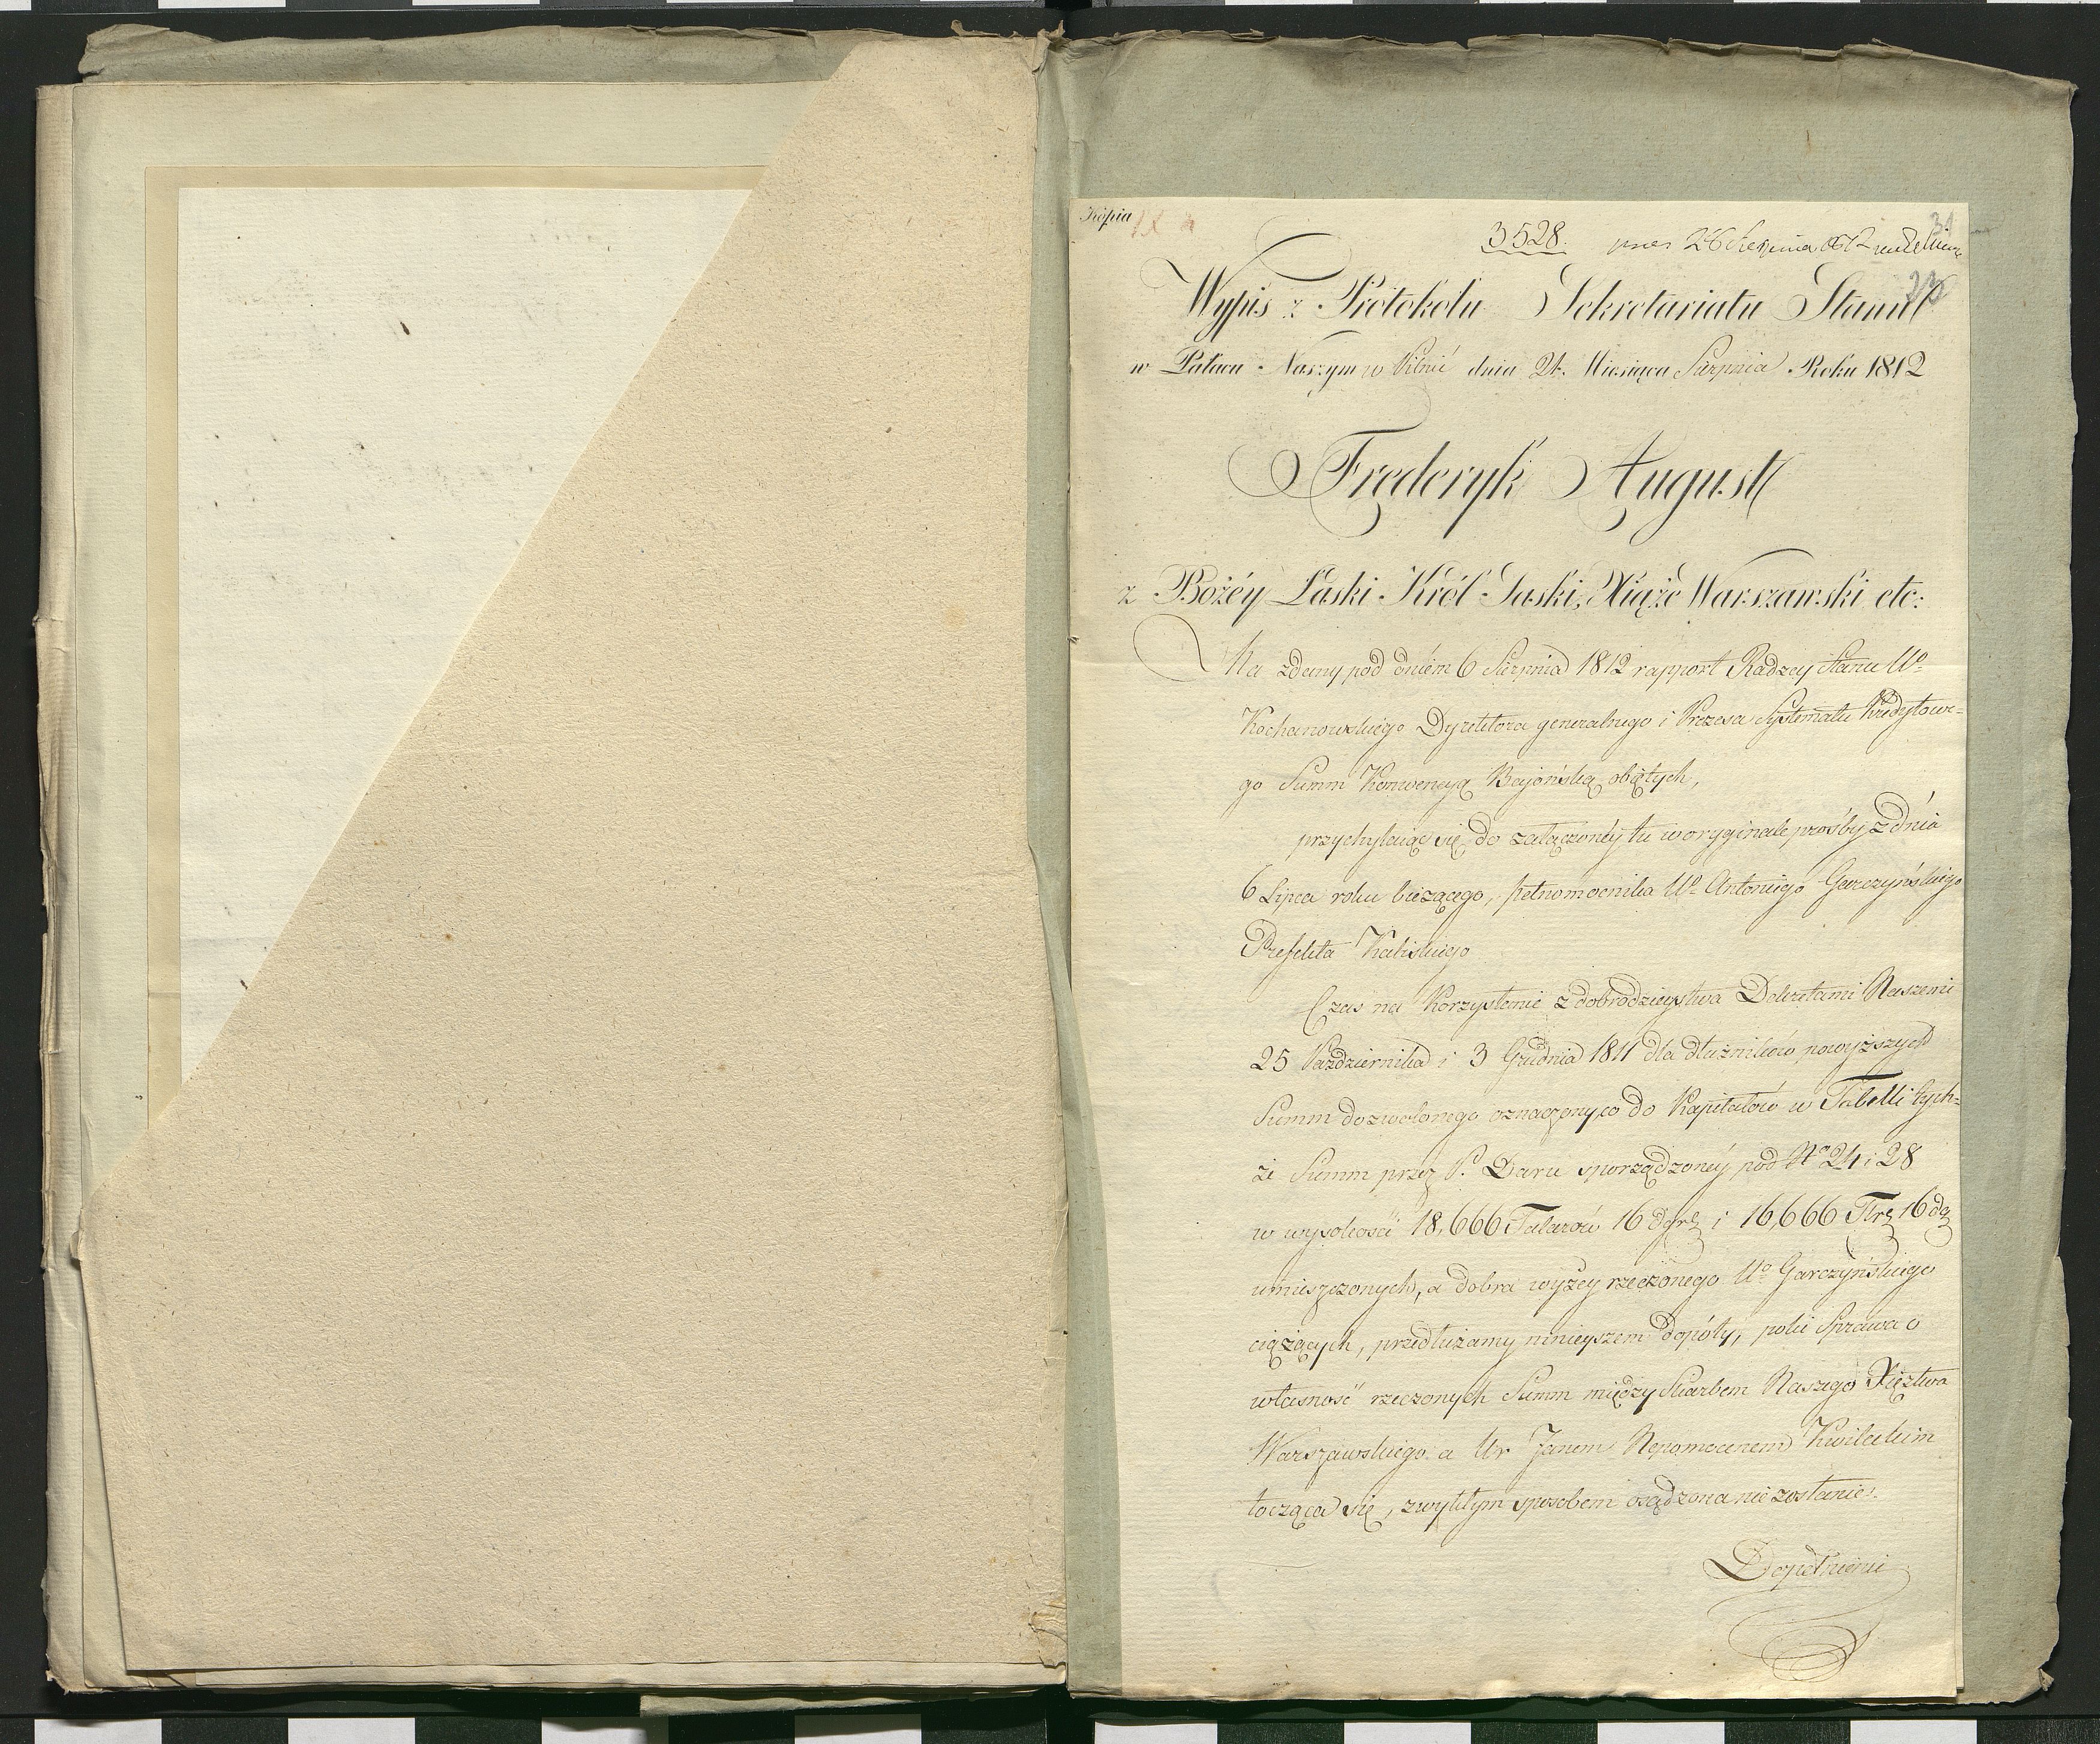 Kópia
31
3528.
23
Wypis z Protokołu Sekretariatu Stanu
w Pałacu Naszym w Pilnic dnia 24. Miesiąca Sierpnia Roku 1812
Fryderyk August
z Bożéy Łaski Król Saski, Xiążę Warszawski etc:
Na zdany pod dniem 6 Sierpnia 1812 rapport Radzcy Stanu Uo
Kochanowskiego Dyrektora generalnego i Prezesa Systematu Kredytowe-
go Summ Konwencyą Bajońską obiętych,
przychylaiąc się do załączonéy tu w oryginale prośby z dnia
6 Lipca roku bieżącego, pełnomocnika Uo Antoniego Garczyńskiego
Prefekta Kaliskiego
Czas na Korzystanie z dobrodzieystwa Dekretami Naszemi
25 Października i 3 Grudnia 1811 dla dłużników powyższych
Summ dozwolonego oznaczony, co do Kapitałów w Tabelli tych-
że Summ przez P. Daru sporządzonéy pod No 24 i 28
w wysokości 18,666 Talarów 16 dgrl i 16,666 Tlr 16 dg
umieszczonych, a dobra wyżey rzeczonego Uo Garczyńskiego
ciążących, przedłużamy ninieyszem dopóty, póki Sprawa o
własność rzeczonych Summ między Skarbem Naszego Xięztwa
Warszawskiego a Ur Janem Nepomucenem Kwileckim
tocząca się, zwykłym sposobem osądzona nie zostanie.
Dopełnienie